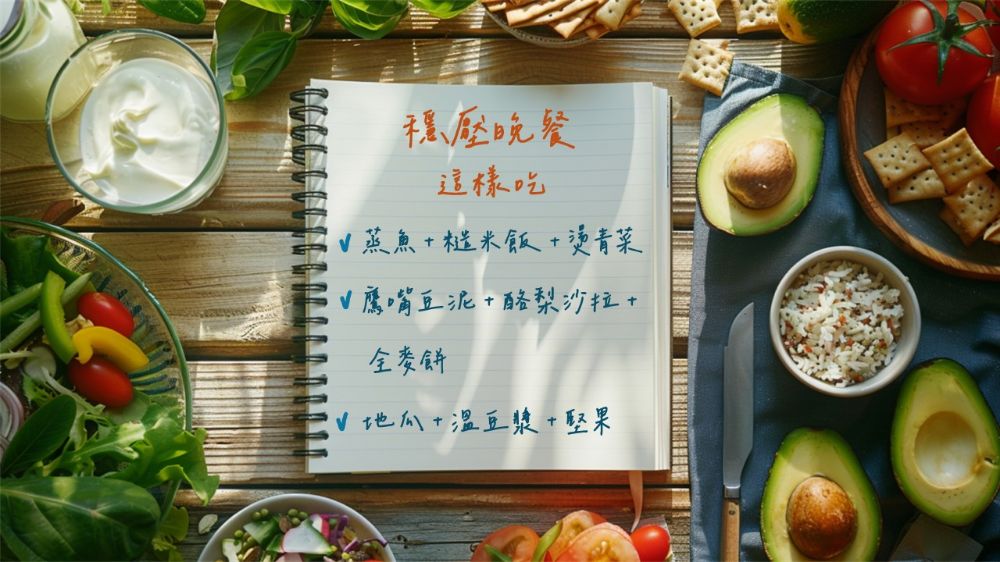 穩壓晚餐
這樣吃
✓ 蒸魚+糙米飯+燙青菜
✓ 鷹嘴豆泥+酪梨沙拉+
全麥餅
✓ 地瓜+溫豆漿+堅果